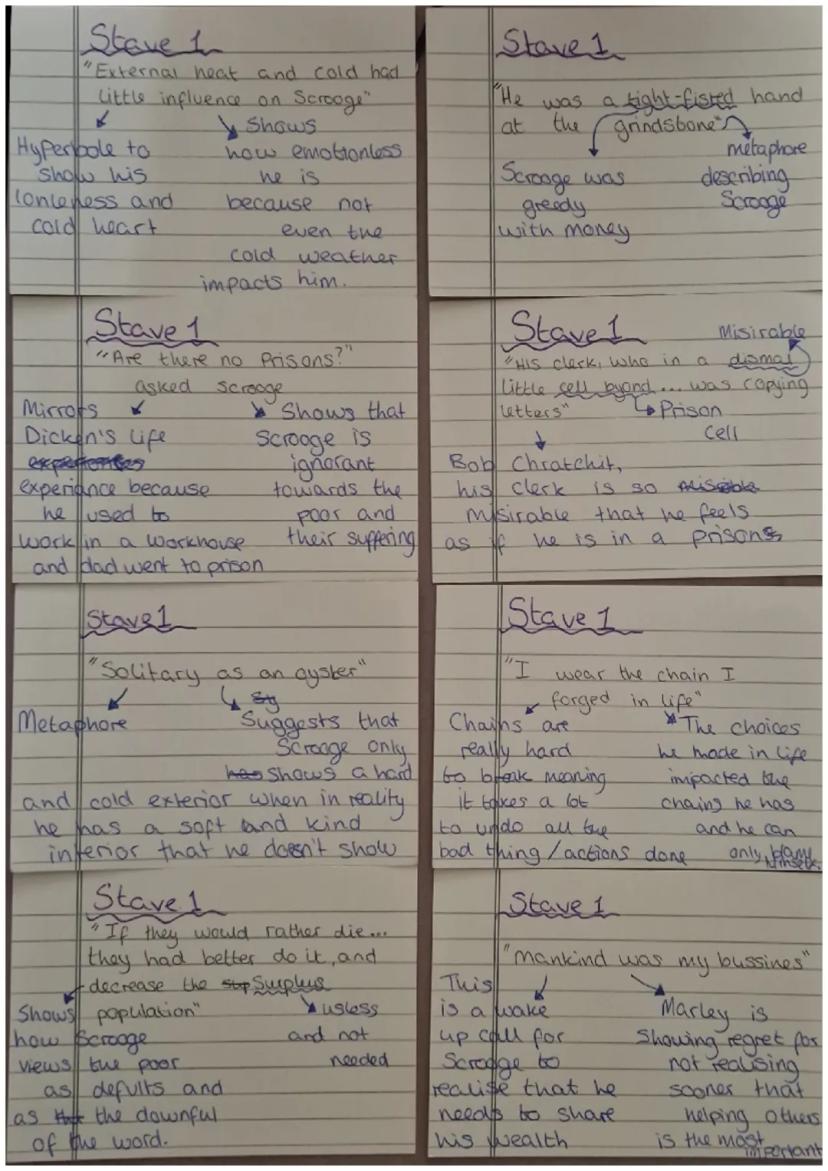 Stave 1
"External heat and cold had
little influence on Scrooge"
Hyperbole to
show his
lonleness and
cold heart
Shows
how emotionless
he is
because not
even the
cold weather
impacts him.
Stave 1
"He was a tight-fisted hand
at the grindsbone"
Scrooge was
greedy
with money
metaphore
describing
Scrooge
Stave 1
"Are there no Prisons?"
asked scrooge
Mirrors
Dicken's life
experiance because
he used to
work in a workhouse
and dad went to prison
Shows that
Scrooge is
ignorant
towards the
poor and
their suffering
Stave 1
Misirable
"His clerk, who in a dismal
little cell byond... was copying
letters"
Prison
cell
Bob Chratchit,
his clerk is so
misirable that he feels
as if he is in a prison
Stave 1
"Solitary as an oyster"
Metaphore
Suggests that
Scrooge only
shows a hard
and cold exterior when in reality
he has a soft and kind
interior that he doesn't show
Stave 1
"I wear the chain I
forged in life"
Chains are
really hard
to break meaning
it takes a lot
to undo all the
bad thing/actions done
The choices
he made in life
impacted the
chains he has
and he can
only blame
himself.
Stave 1
"If they would rather die...
they had better do it, and
decrease the Surplus
population"
Shows
how Scrooge
views the poor
as defults and
as the downful
of the word.
usless
and not
needed
Stave 1
"Mankind was my bussines"
This
is a wake
up call for
Scrooge to
realise that he
needs to share
his wealth
Marley is
Showing regret for
not realising
sooner that
helping others
is the most
important